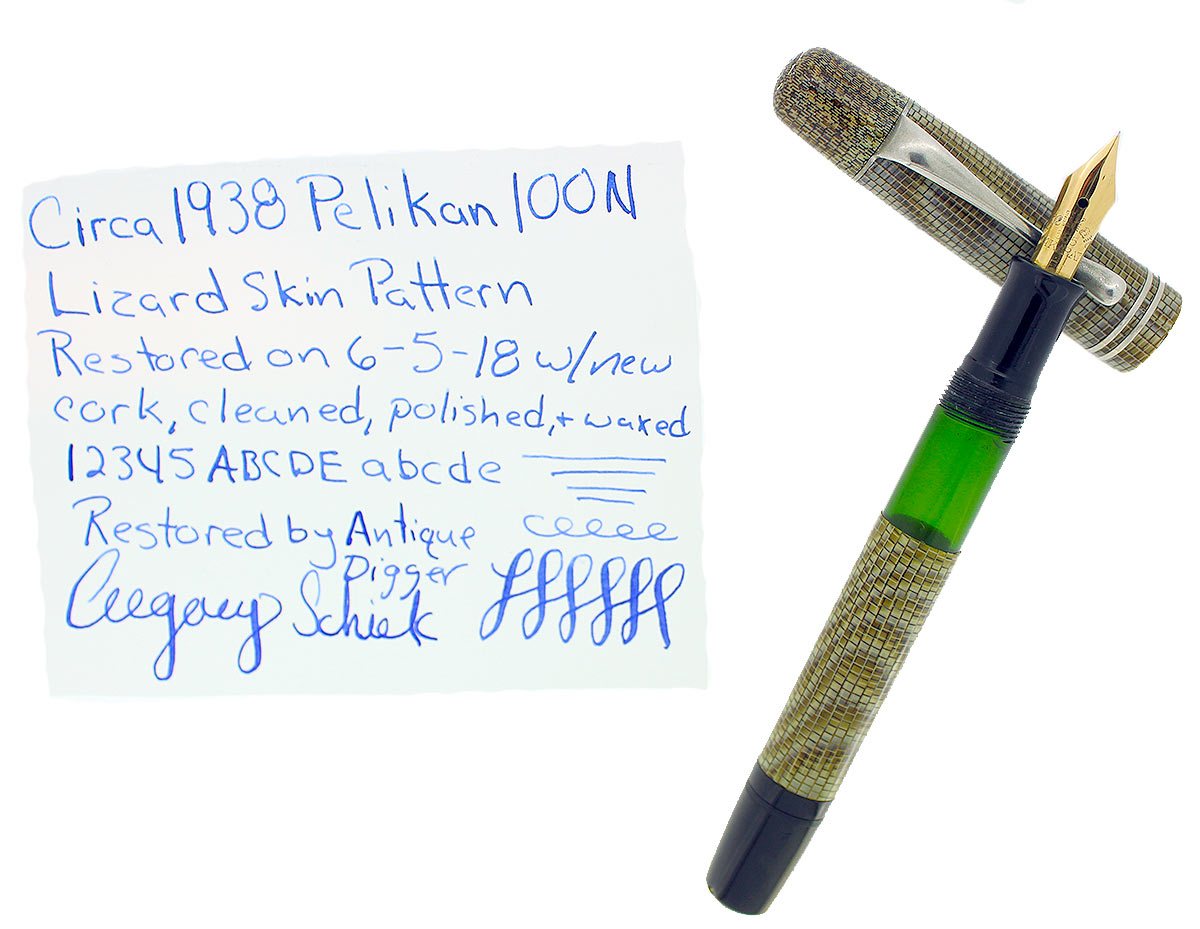 Circa 1938 Pelikan 100N
Lizard Skin Pattern
Restored on 6-5-18 w/new
cork, cleaned, polished, + waxed
12345 ABCDE abcde
Restored by Antique
Digger
Gregory Schiek